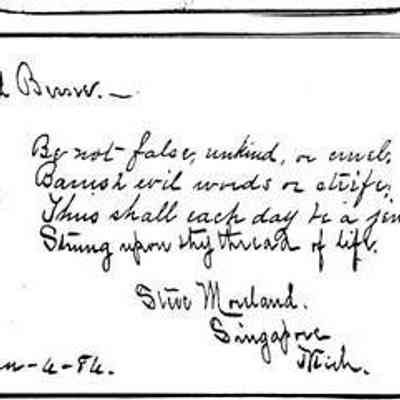 Be not false, unkind, or cruel,
Banish evil words or strife,
Thus shall each day be a
Strung upon thy thread of life.
Steve Moreland.
Singapore
Mich.